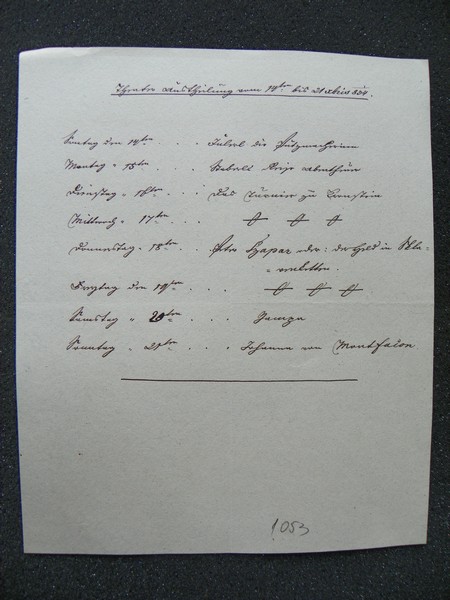 Theater Austheilung vom 14ten bis 21 xbris 834.
Sontag den 14ten . . . Julerl die Putzmacherin
Montag " 15ten . . . Staberls Reise Abentheuer
Dienstag " 16ten . . Das Turnier zu Kronstein
Mittwoch " 17ten . . .
Donnerstag " 18ten . . Peter Szapar oder: der Held in
Freytag den 19ten . . .
Samstag " 20ten . . . Zampa
Sonntag " 21ten . . . Johanna von Montfaucon
1053